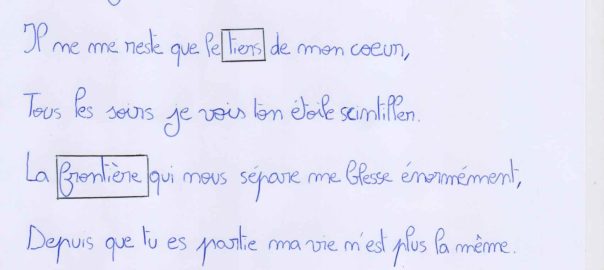 Il ne me reste que le tiers de mon coeur,
Tous les soirs je vois ton étoile scintiller.
La frontière qui nous sépare me blesse énormément,
Depuis que tu es partie ma vie n'est plus la même.